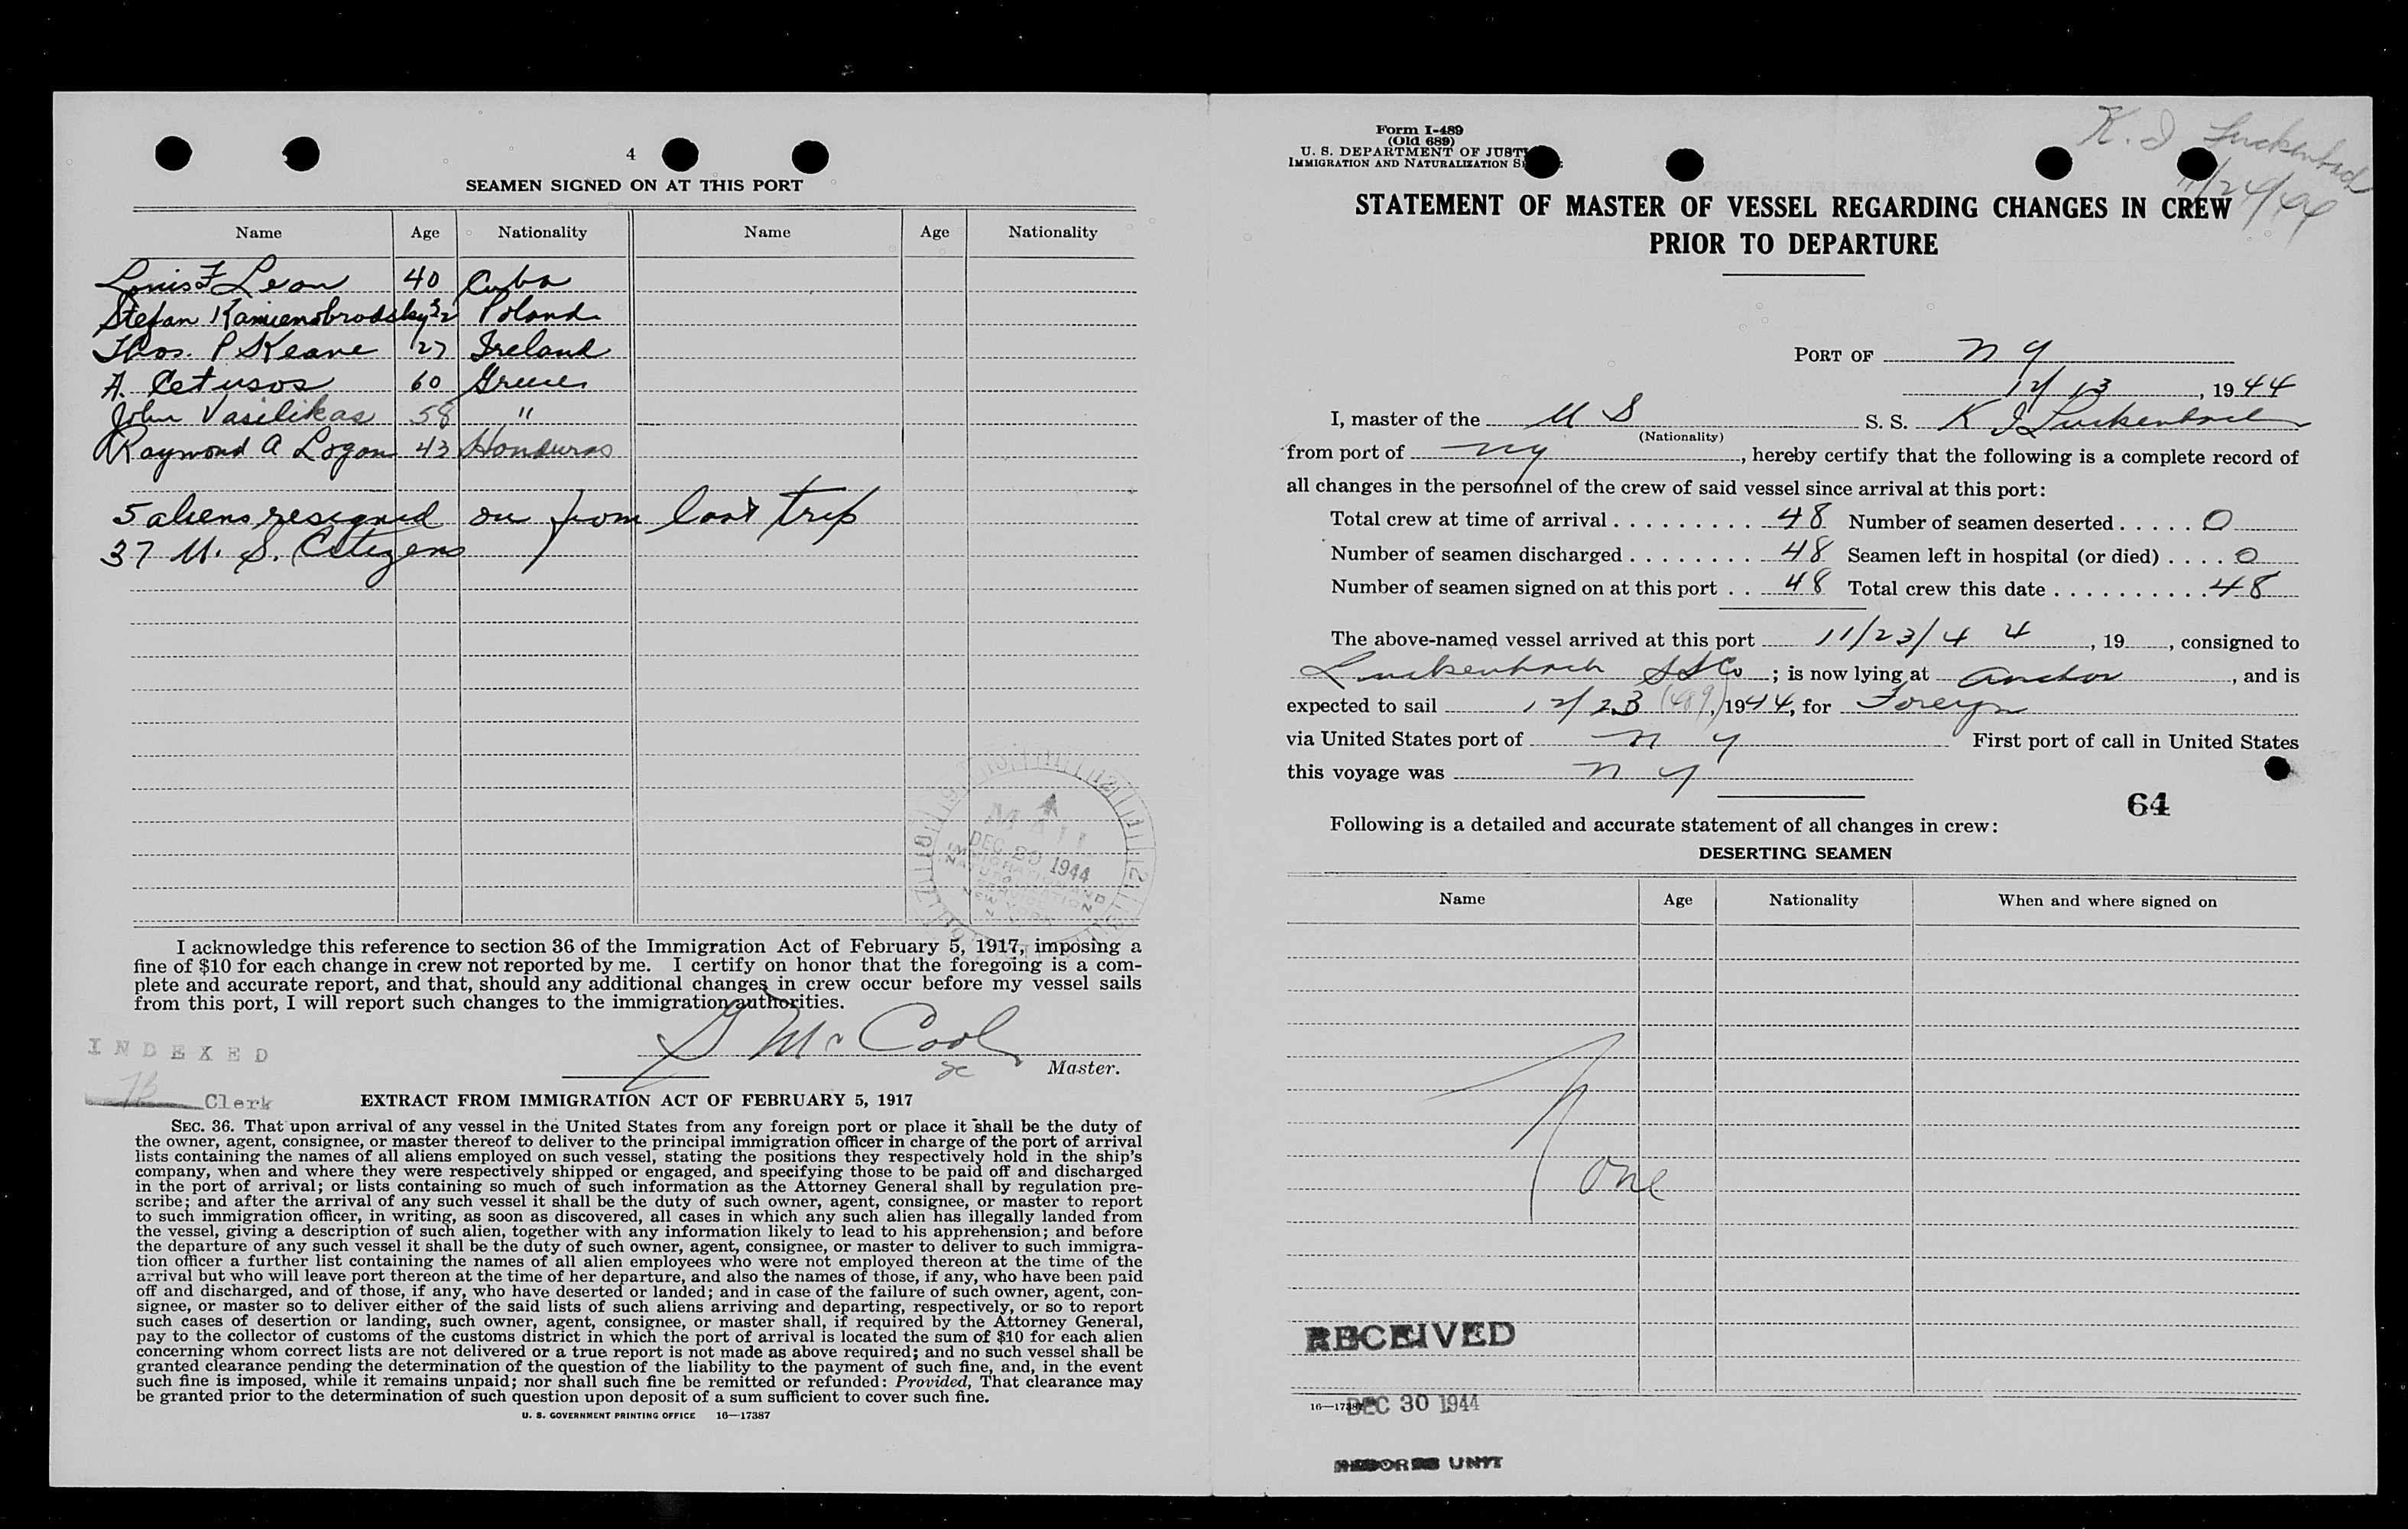 4
SEAMEN SIGNED ON AT THIS PORT
Name Age Nationality Name Age Nationality
Louis F Leon 40 Cuba
Stefan Kamienobrodsky 32 Poland
Thos. P Keane 27 Ireland
A. Cetusos 60 Greece
John Vasilikas 58 "
Raymond A Logan 43 Honduras
5 aliens resigned on from last trip
37 U. S. Citizens
MAIL
DEC 30 1944
IMMIGRATION AND
NATURALIZATION
SERVICE
NEW YORK
I acknowledge this reference to section 36 of the Immigration Act of February 5, 1917, imposing a
fine of $10 for each change in crew not reported by me. I certify on honor that the foregoing is a com-
plete and accurate report, and that, should any additional changes in crew occur before my vessel sails
from this port, I will report such changes to the immigration authorities.
McCool
Master.
INDEXED
Clerk
EXTRACT FROM IMMIGRATION ACT OF FEBRUARY 5, 1917
SEC. 36. That upon arrival of any vessel in the United States from any foreign port or place it shall be the duty of
the owner, agent, consignee, or master thereof to deliver to the principal immigration officer in charge of the port of arrival
lists containing the names of all aliens employed on such vessel, stating the positions they respectively hold in the ship's
company, when and where they were respectively shipped or engaged, and specifying those to be paid off and discharged
in the port of arrival; or lists containing so much of such information as the Attorney General shall by regulation pre-
scribe; and after the arrival of any such vessel it shall be the duty of such owner, agent, consignee, or master to report
to such immigration officer, in writing, as soon as discovered, all cases in which any such alien has illegally landed from
the vessel, giving a description of such alien, together with any information likely to lead to his apprehension; and before
the departure of any such vessel it shall be the duty of such owner, agent, consignee, or master to deliver to such immigra-
tion officer a further list containing the names of all alien employees who were not employed thereon at the time of the
arrival but who will leave port thereon at the time of her departure, and also the names of those, if any, who have been paid
off and discharged, and of those, if any, who have deserted or landed; and in case of the failure of such owner, agent, con-
signee, or master so to deliver either of the said lists of such aliens arriving and departing, respectively, or so to report
such cases of desertion or landing, such owner, agent, consignee, or master shall, if required by the Attorney General,
pay to the collector of customs of the customs district in which the port of arrival is located the sum of $10 for each alien
concerning whom correct lists are not delivered or a true report is not made as above required; and no such vessel shall be
granted clearance pending the determination of the question of the liability to the payment of such fine, and, in the event
such fine is imposed, while it remains unpaid; nor shall such fine be remitted or refunded: Provided, That clearance may
be granted prior to the determination of such question upon deposit of a sum sufficient to cover such fine.
U. S. GOVERNMENT PRINTING OFFICE 16—17387
Form I-489
(Old 689)
U. S. DEPARTMENT OF JUST
IMMIGRATION AND NATURALIZATION S
K. I Luckenbach
11/24/44
STATEMENT OF MASTER OF VESSEL REGARDING CHANGES IN CREW
PRIOR TO DEPARTURE
PORT OF N Y
12/13, 1944
I, master of the U S S. S. K I Luckenbach
(Nationality)
from port of NY, hereby certify that the following is a complete record of
all changes in the personnel of the crew of said vessel since arrival at this port:
Total crew at time of arrival 48 Number of seamen deserted 0
Number of seamen discharged 48 Seamen left in hospital (or died) 0
Number of seamen signed on at this port 48 Total crew this date 48
The above-named vessel arrived at this port 11/23/44, 19, consigned to
Luckenbach SS Co; is now lying at Anchor, and is
expected to sail 12/23 (489), 1944, for Foreign
via United States port of N Y First port of call in United States
this voyage was N Y
64
Following is a detailed and accurate statement of all changes in crew:
DESERTING SEAMEN
Name Age Nationality When and where signed on
None
RECEIVED
16—17387
DEC 30 1944
RECORDS UNIT